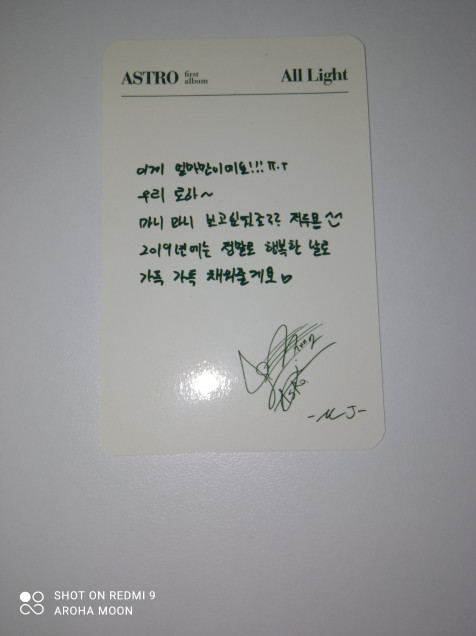 ASTRO first album All Light
이게 얼마만이에요!!! ㅠ.ㅠ
우리 로하~
마니 마니 보고싶었죠?? 저두욘
2019년에는 정말로 행복한 날로
가득 가득 채워줄게요♡
-MJ-
SHOT ON REDMI 9
AROHA MOON